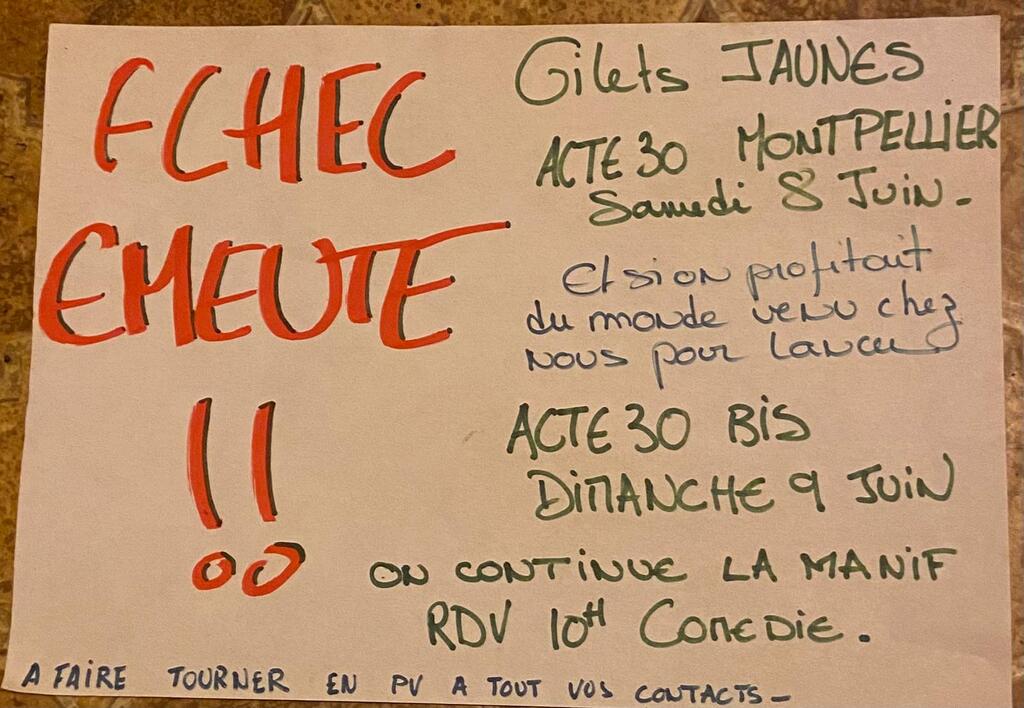 ECHEC
EMEUTE
!!
Gilets JAUNES
ACTE 30 MONTPELLIER
Samedi 8 Juin -
Et si on profitait
du monde venu chez
nous pour lancer
ACTE 30 BiS
DiMANCHE 9 JuiN
ON CONTiNUE LA MANiF
RDV 10H COMEDiE.
A FAIRE TOURNER EN PV A TOUT VOS CONTACTS -